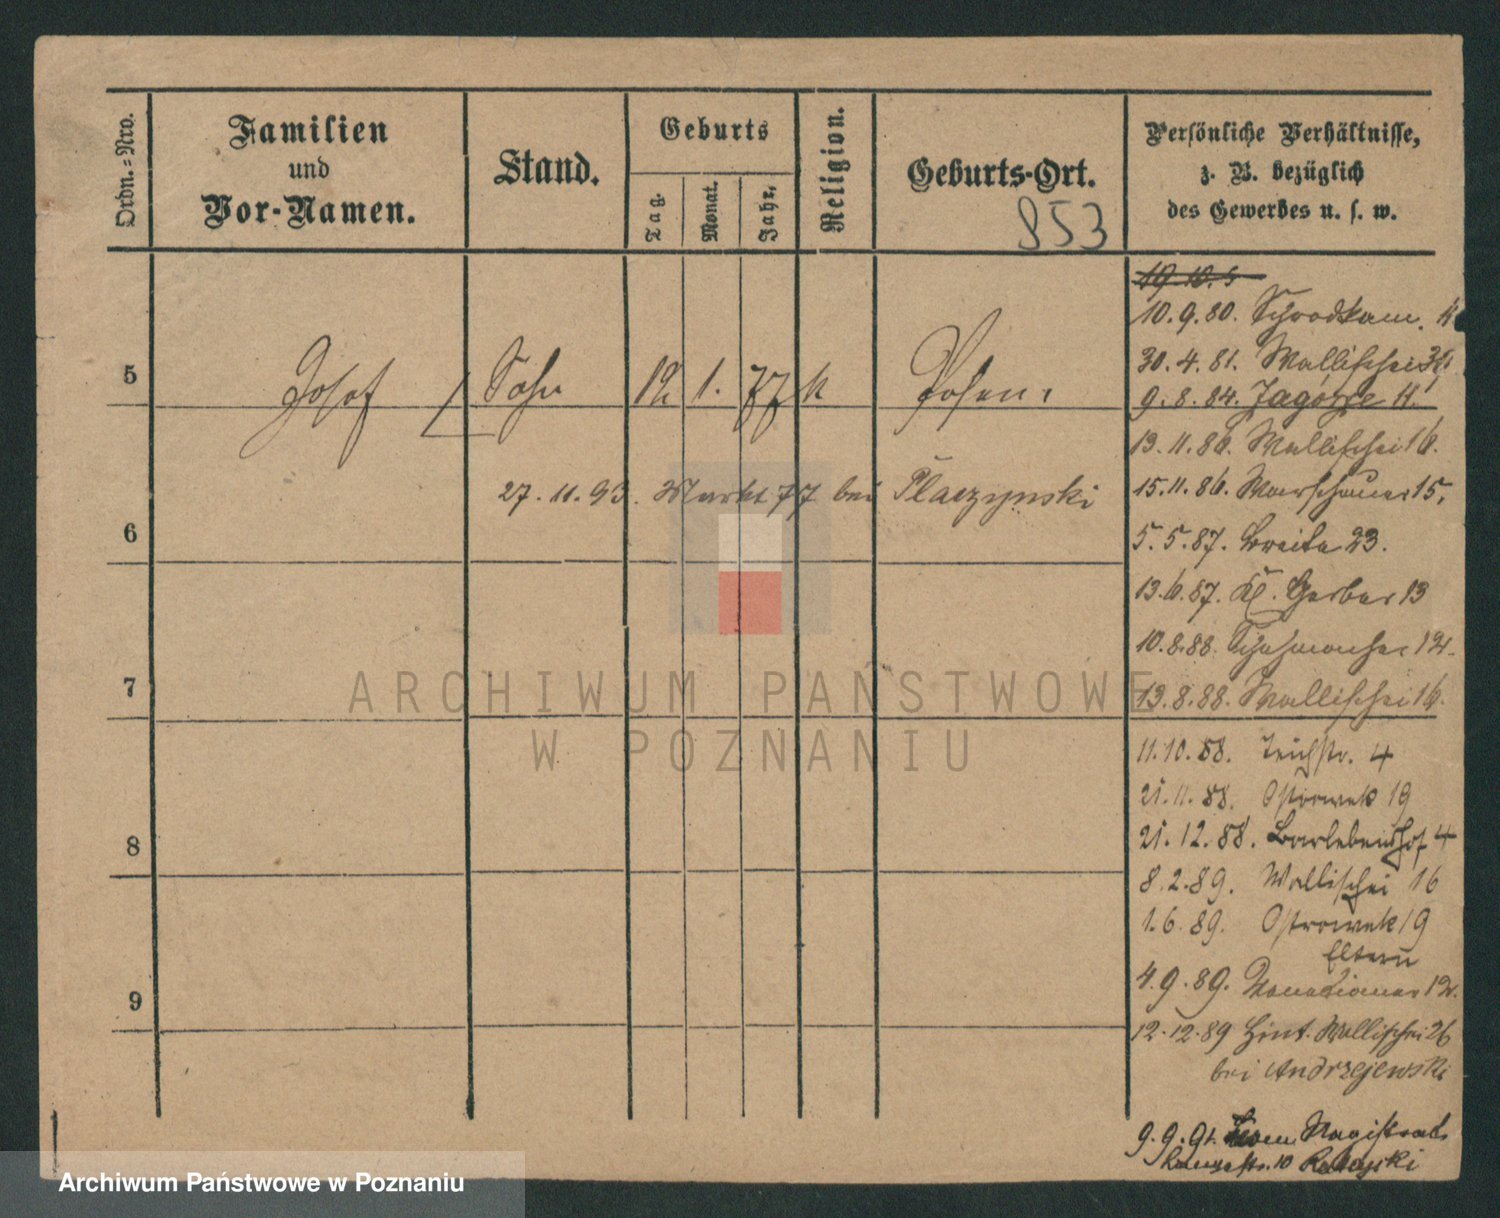 Ordn.=Nro.
Familien
und
Vor-Namen.
Stand.
Geburts
Tag.
Monat.
Jahr.
Religion.
Geburts-Ort.
853
Persönliche Verhältnisse,
z. B. bezüglich
des Gewerbes u. s. w.
19.10.5
10.9.80. Schrodkam.
5
Josef
Sohn
12 1. 77 k
Posen.
30.4.81. Wallischei
9.8.84. Jagorze 11.
13.11.86. Wallischei 16.
27.11.93. Markt 77 bei Placzynski
15.11.86. Warschauer 15.
6
5.5.87. Breite 23.
13.6.87. Kl. Gerber 13
10.8.88. 12.
7
13.8.88. Wallischei 16.
11.10.88. Teichstr. 4
21.11.88. Ostrowek 19
8
21.12.88. Barlebenshof 4
8.2.89. Wallischei 16
1.6.89. Ostrowek 19
Eltern
9
4.9.89. Venetianer 12.
12.12.89 Hint. Wallischei 26
bei Andrzejewski
9.9.91. Magistrat
10
ARCHIWUM PAŃSTWOWE
W POZNANIU
Archiwum Państwowe w Poznaniu